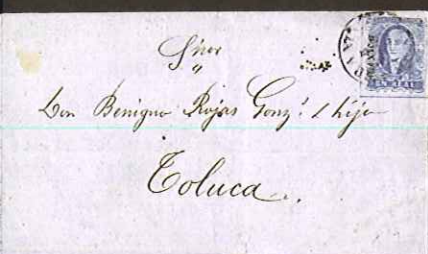 Sñor
"
Don Benigno Rojas Gonz.² é hijo
Toluca.